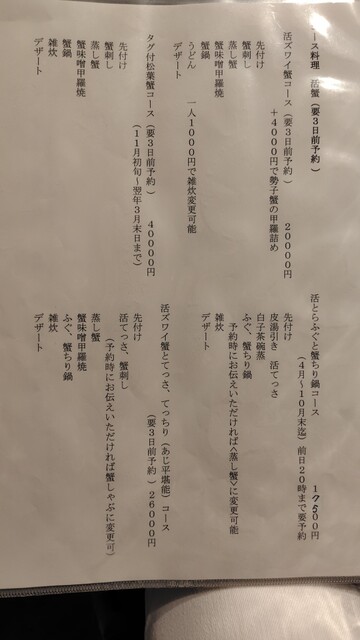 ース料理　活蟹（要３日前予約）
活ズワイ蟹コース（要３日前予約）　２００００円
＋４０００円で勢子蟹の甲羅詰め
先付け
蟹刺し
蒸し蟹
蟹味噌甲羅焼
蟹鍋
うどん　一人１０００円で雑炊変更可能
デザート
タグ付松葉蟹コース（要３日前予約）　４００００円
（１１月初旬～翌年３月末日まで）
先付け
蟹刺し
蒸し蟹
蟹味噌甲羅焼
蟹鍋
雑炊
デザート
活とらふぐと蟹ちり鍋コース　１７５００円
（４月～１０月末迄）前日２０時まで要予約
先付け
皮湯引き　活てっさ
白子茶碗蒸
ふぐ、蟹ちり鍋
予約時にお伝えいただければ＜蒸し蟹＞に変更可能
雑炊
デザート
活ズワイ蟹とてっさ、てっちり（あじ平堪能）コース
（要３日前予約）２６０００円
先付け
活てっさ、蟹刺し
（予約時にお伝えいただければ蟹しゃぶに変更可）
蒸し蟹
蟹味噌甲羅焼
ふぐ、蟹ちり鍋
雑炊
デザート